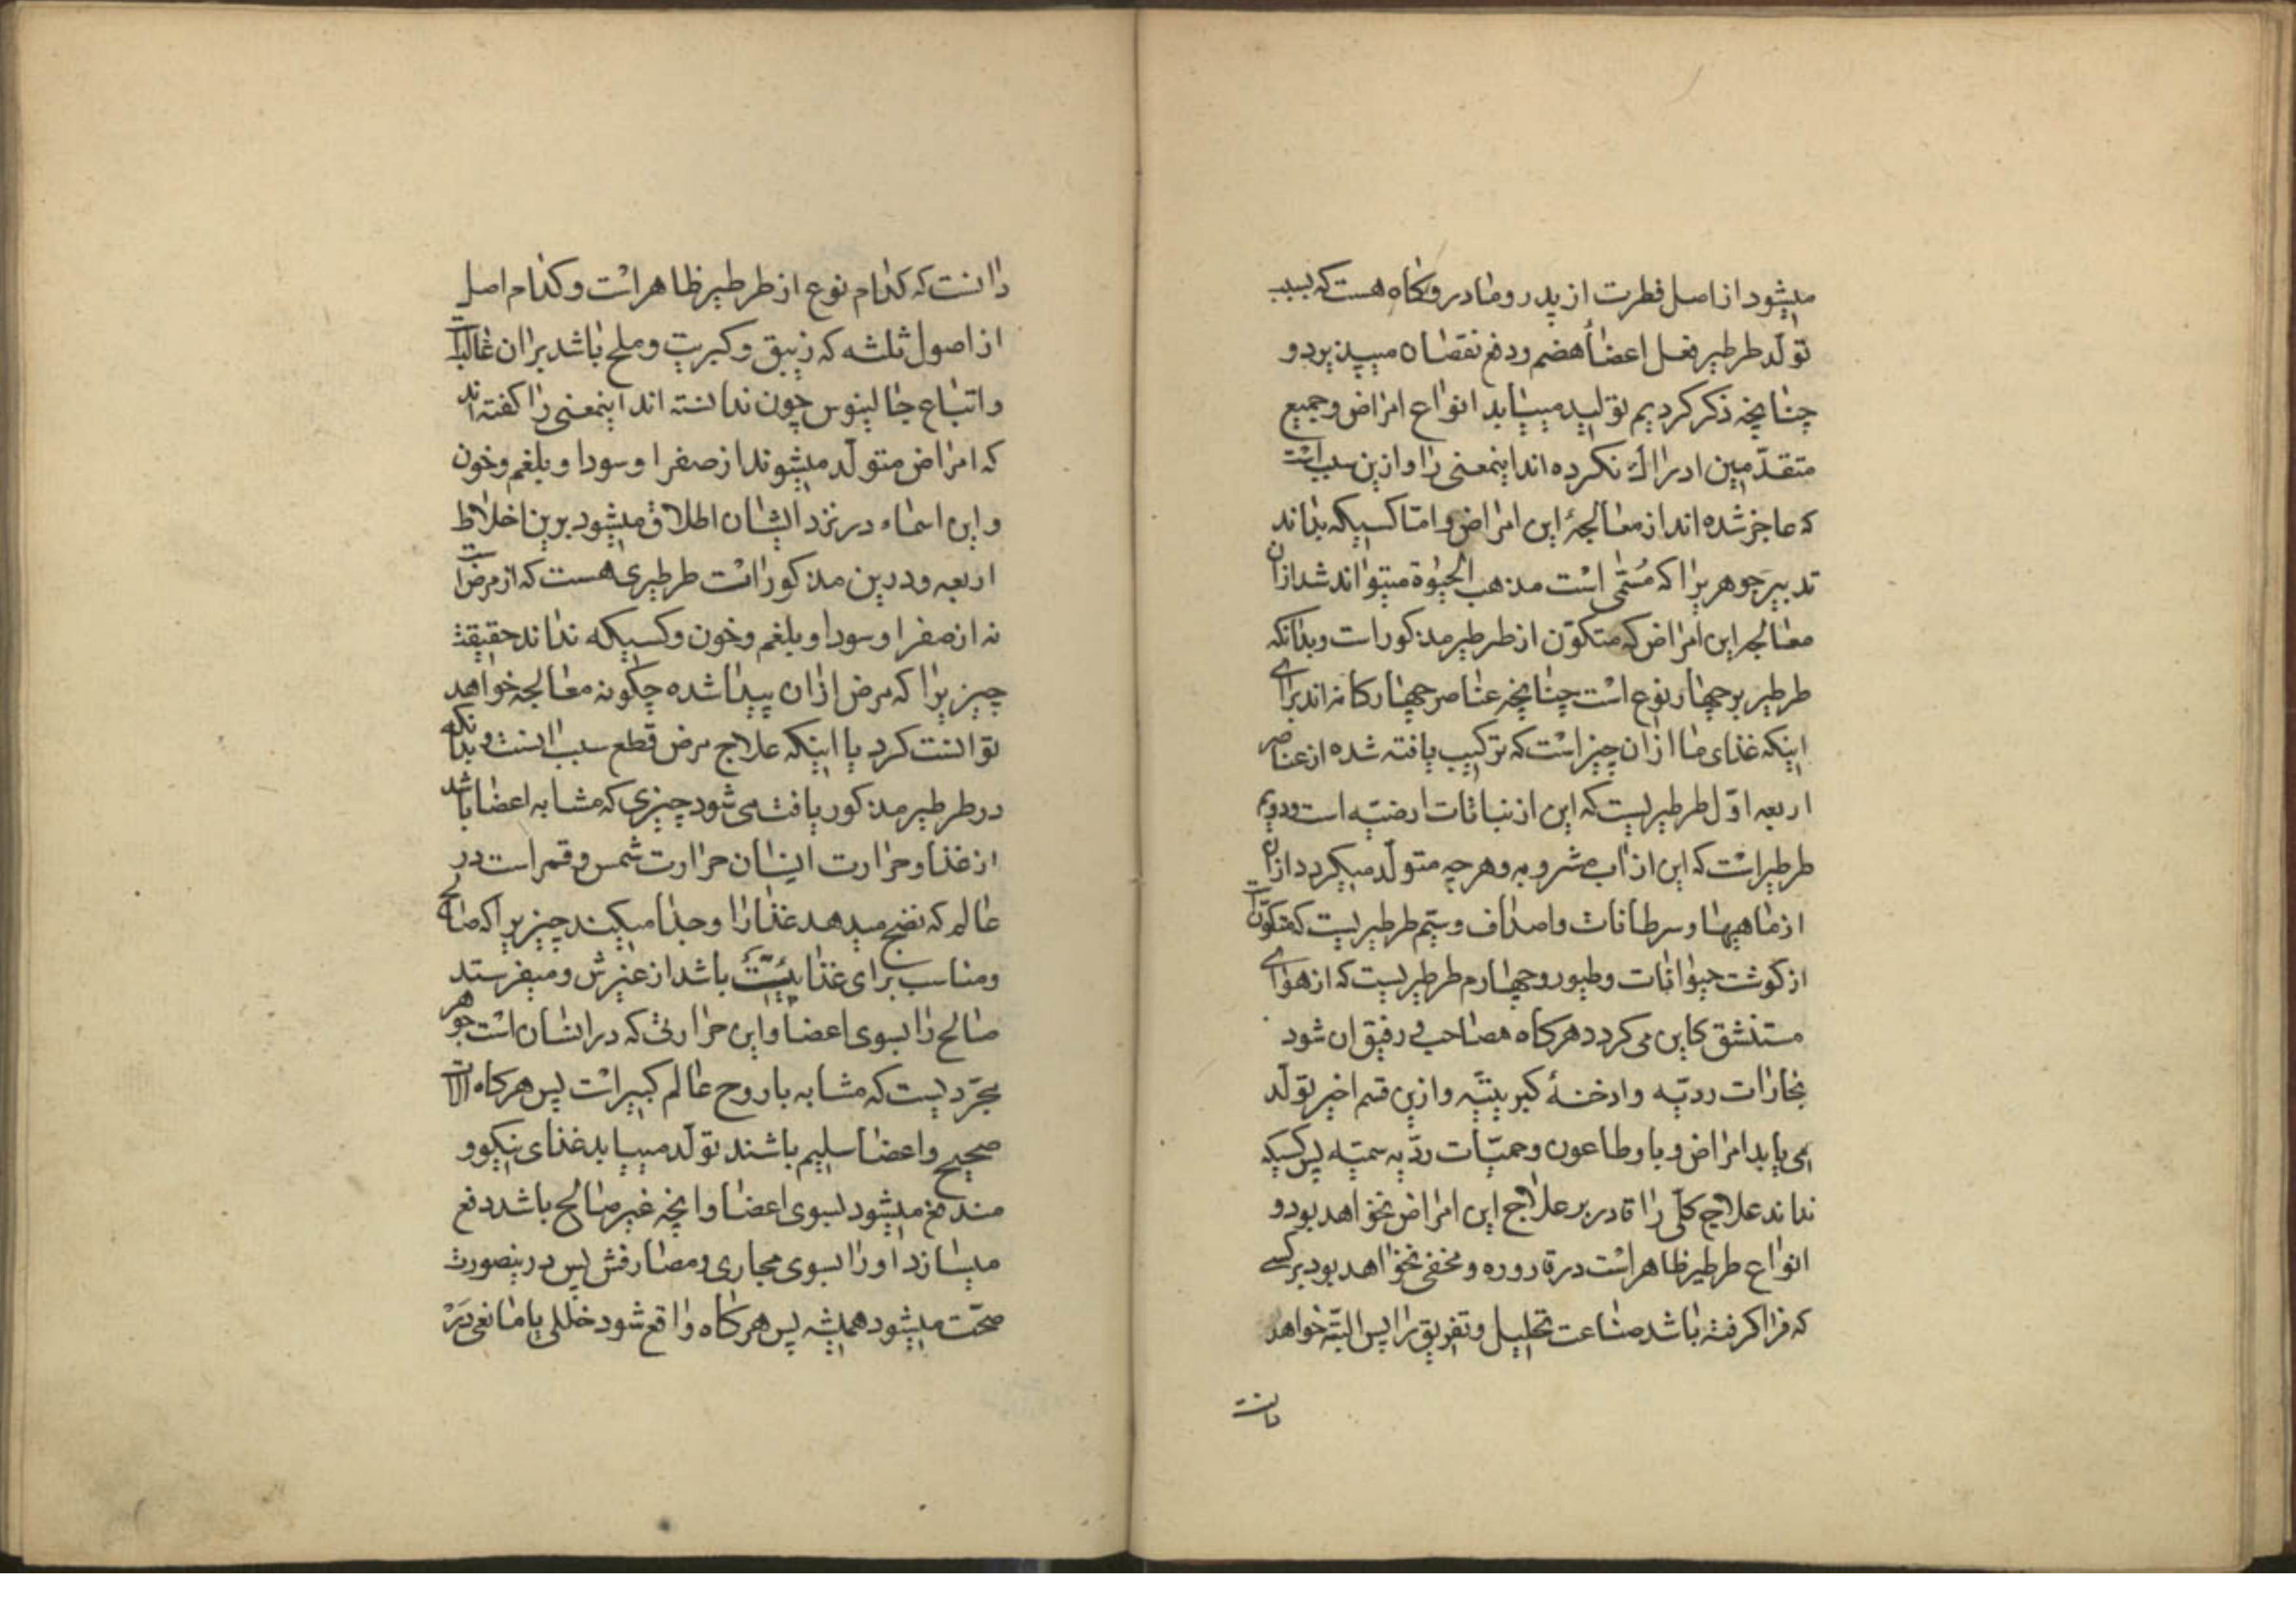 میشود از اصل فطرت از پدر و مادر و کاه هست که بسبب
تولّد طرطیر فعل اعضاء هضم و دفع نقصان میپذیرد و
چنانچه ذکر کردیم تولید مییابد انواع امراض و جمیع
متقدّمین ادراک نکرده اند اینمعنی را و ازین سبب است
که عاجز شده اند از معالجهٔ این امراض و امّا کسیکه بداند
تدبیر جوهریرا که مسمّی است مذهب الحیوة میتواند شد از آن
معالجه این امراض که متکوّن از طرطیر مذکورات و بدانکه
طرطیر بر چهار نوع است چنانچه عناصر چهارکانه اند برای
اینکه غذای ما از آن چیز است که ترکیب یافته شده از عناصر
اربعه اوّل طرطیریست که این از نباتات ارضیّه است و دویم
طرطیر است که این از آب مشروبه و هر چه متولّد میکردد از آن
از ماهیها و سرطانات و اصداف و سیّم طرطیریست که متکوّن است
از کوشت حیوانات و طیور و چهارم طرطیریست که از هوای
مستنشق کاین می کردد هرکاه مصاحب و رفیق ان شود
بخارات ردیّه و ادخنهٔ کبریتیّه و ازین قسم اخیر تولّد
می یابد امراض وبا و طاعون و حمیّات ردّیه سمیّه پس کسیکه
نداند علاج کلّی را قادر بر علاج این امراض نخواهد بود و
انواع طرطیر ظاهر است در قاروره و مخفی نخواهد بود بر کسی
که فرا کرفته باشد صناعت تحلیل و تفریق را پس البتّه خواهد
دانست
دانست که کدام نوع از طرطیر ظاهر است و کدام اصل
از اصول ثلثه که زیبق و کبریت و ملح باشد بر ان غالبست
و اتباع جالینوس چون ندانسته اند اینمعنی را کفته اند
که امراض متولّد میشوند از صفرا و سودا و بلغم و خون
و این اسماء در نزد ایشان اطلاق میشود برین اخلاط
اربعه و درین مذکور است طرطیری هست که از مرض است
نه از صفرا و سودا و بلغم و خون و کسیکه نداند حقیقت
چیزیرا که مرض از ان پیدا شده چکونه معالجه خواهد
توانست کرد با اینکه علاج مرض قطع سبب انست و بدانکه
در طرطیر مذکور یافت می شود چیزی که مشابه اعضا باشد
از غذا و حرارت انسان حرارت شمس و قمر است در
عالم که نضج میدهد غذا را و جدا میکند چیزیرا که صالح
و مناسب برای غذا باشد از غیرش و میفرستد
صالح را بسوی اعضا و این حرارتی که در انسان است جوهر
مجرّدیست که مشابه با روح عالم کبیر است پس هرکاه آلات
صحیح و اعضا سلیم باشند تولّد مییابد غذای نیکو و
مندفع میشود بسوی اعضا و انچه غیر صالح باشد دفع
میسازد او را بسوی مجاری و مصارفش پس درینصورت
صحّت میشود همیشه پس هرکاه واقع شود خللی یا مانعی در